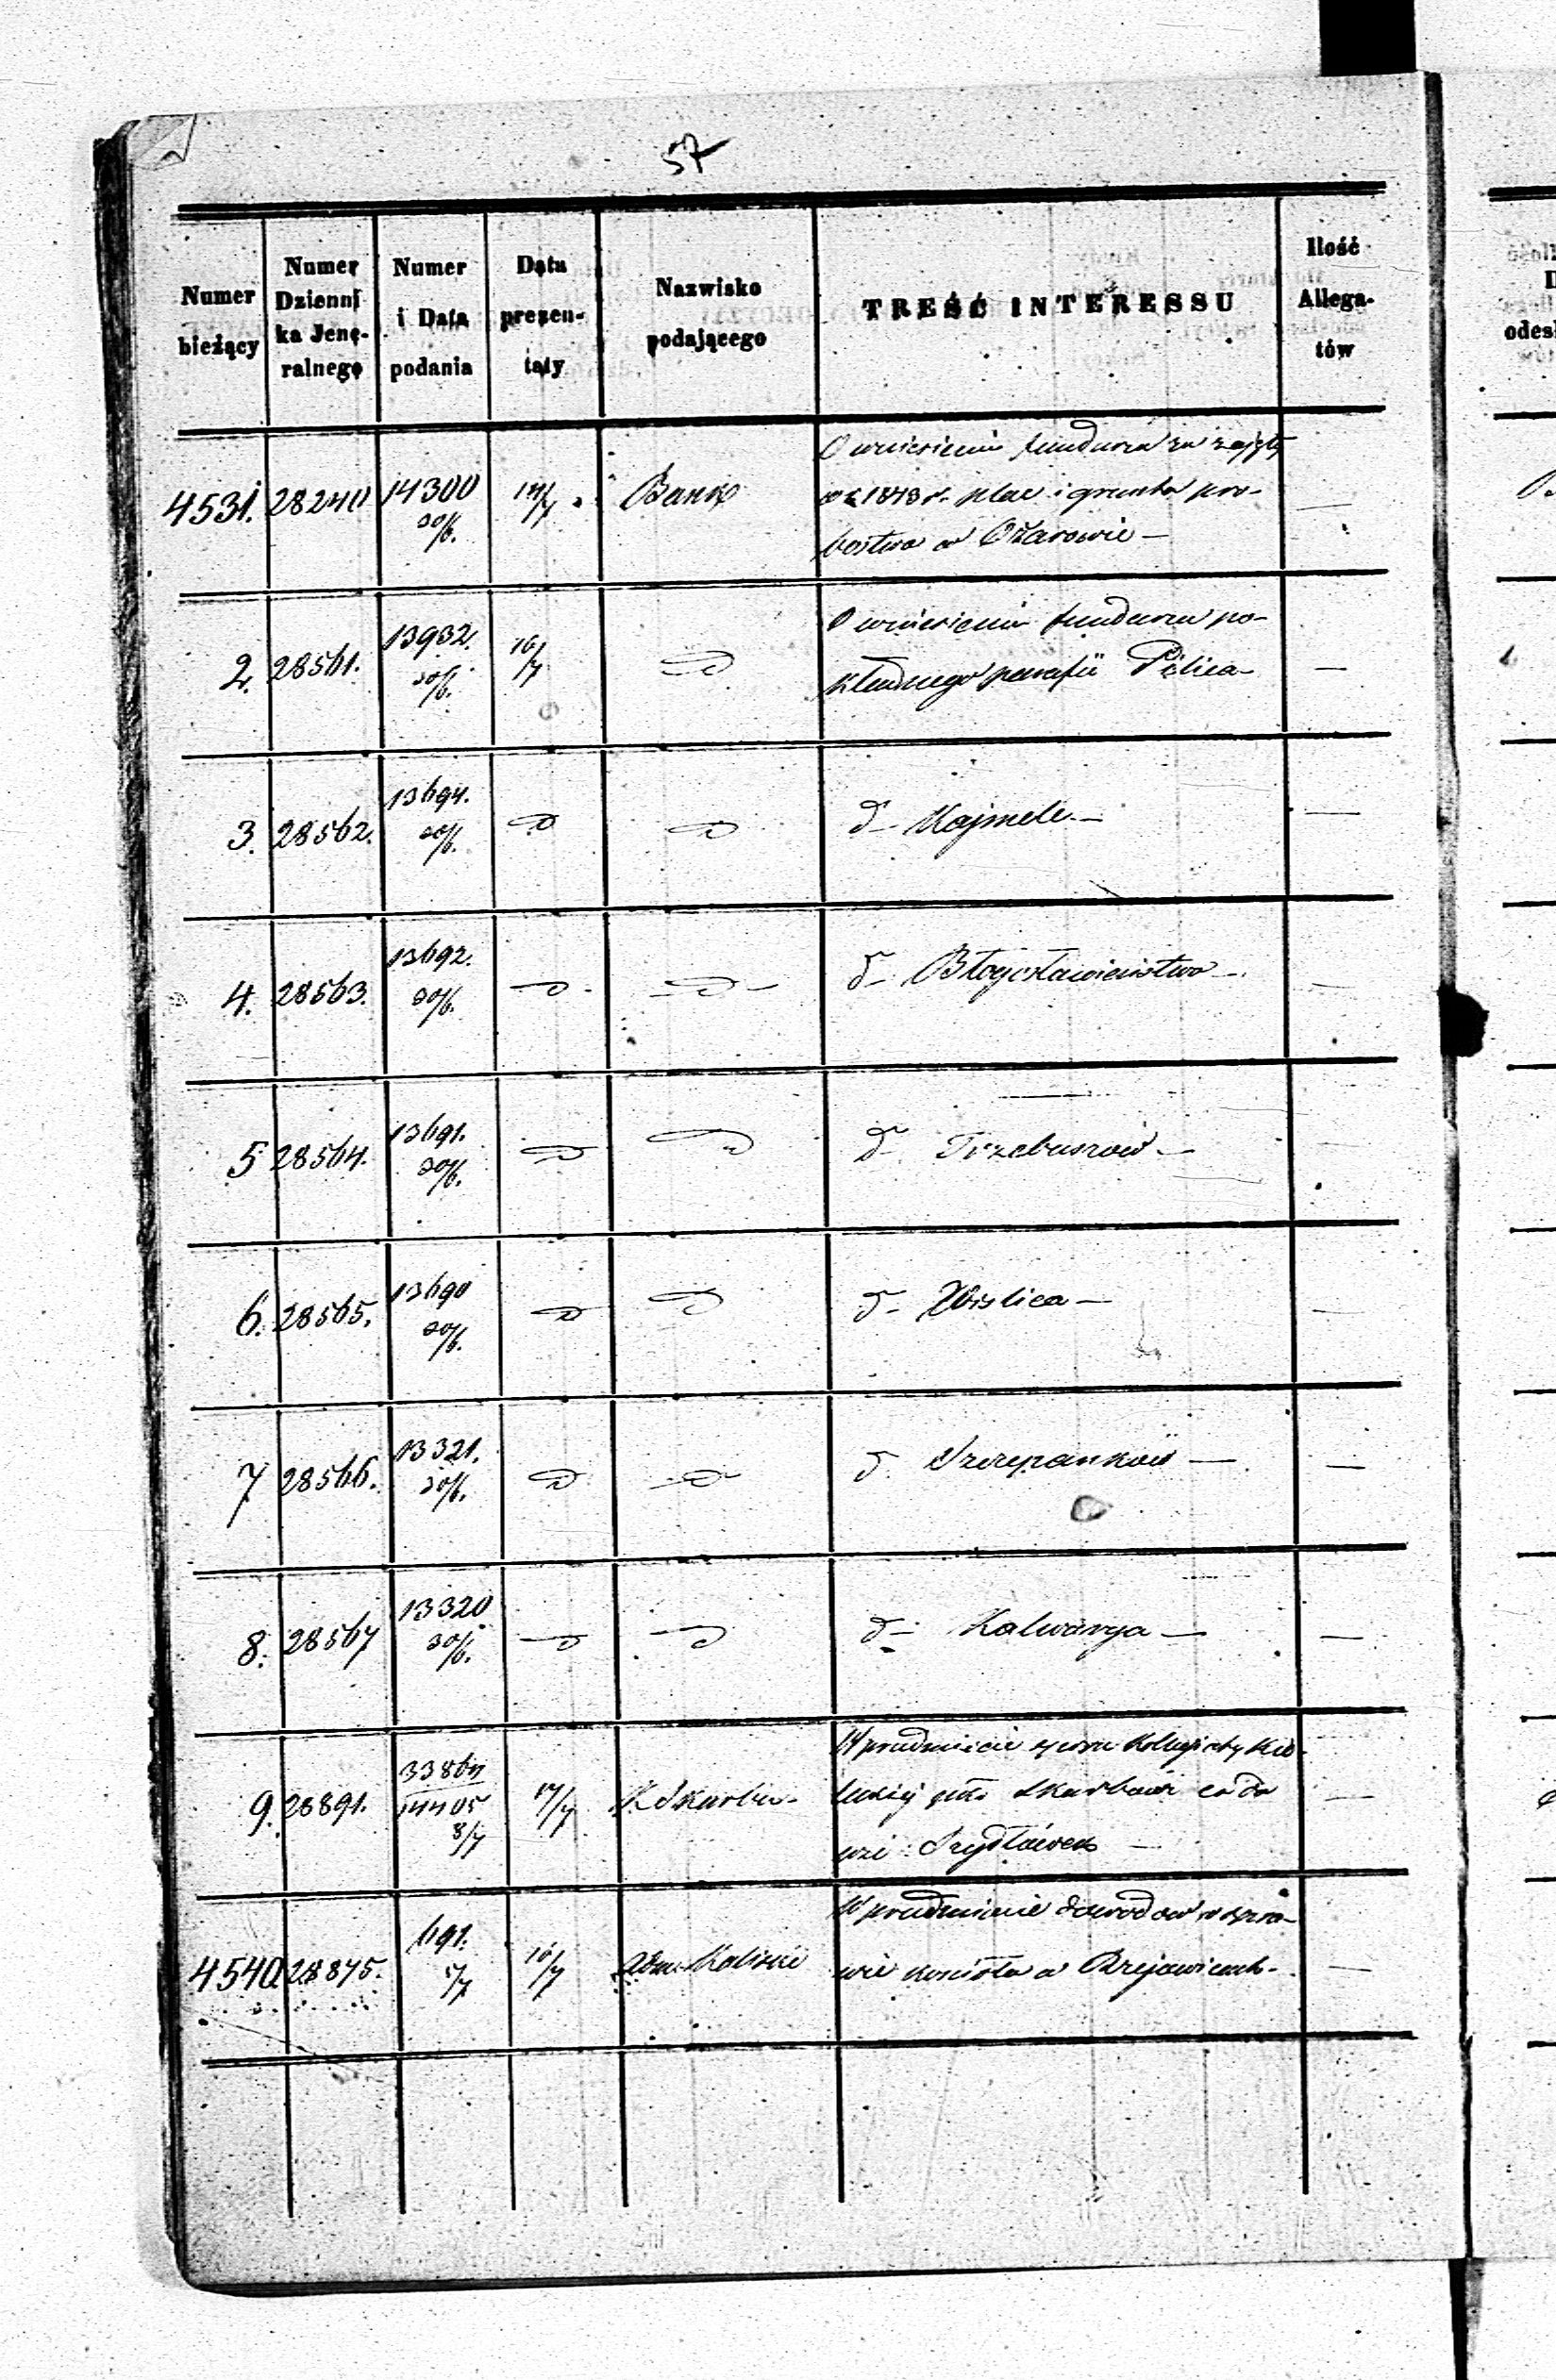 57
Numer bieżący
Numer Dzienni ka Jene- ralnego
Numer i Data podania
Data prezen- taty
Nazwisko podającego
TREŚĆ INTERESSU
Ilość Allega- tów
4531. 28240 14300 30/6. 14/7 Bank O wniesieniu funduszu za zajęty
w r. 1843 r. plac i grunta pro-
bostwa w Ożarowie —
2. 28561. 13932. 30/6. 16/7 D O wniesieniu funduszu po-
kładnego parafii Pilica —
3. 28562. 13694. 30/6. D D d— Kajmele —
4. 28563. 13692. 30/6. D D d— Błogosławieństwo —
5 28564. 13691. 30/6. D D d— Trzebuszów —
6. 28565. 13690 30/6. D D d— Wislica —
7 28566. 13321. 30/6. D D d. Szczepanków —
8. 28567 13320 30/6. D D d— Kalwarya —
9. 28891. 14405 8/7 17/7 K. Skarbu W przedmiocie sporu Kollegiaty Kie-
leckiej Skarbowi co do
wsi Szydłówek —
4540 28875. 691. 16/7 Adm. Kaliski W przedmiocie dowodów w spra-
wie kościoła w